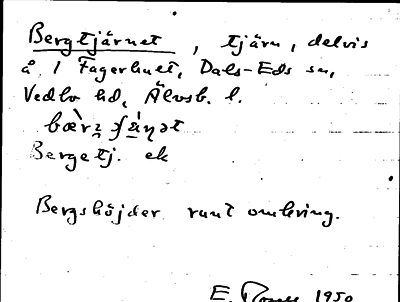 Bergtjärnet, tjärn, delvis
å 1 Fagerhult, Dals-Eds sn,
Vedbo hd, Älvsb. l.
Bergetj. ek
Bergshöjder runt omkring.
E. 1950